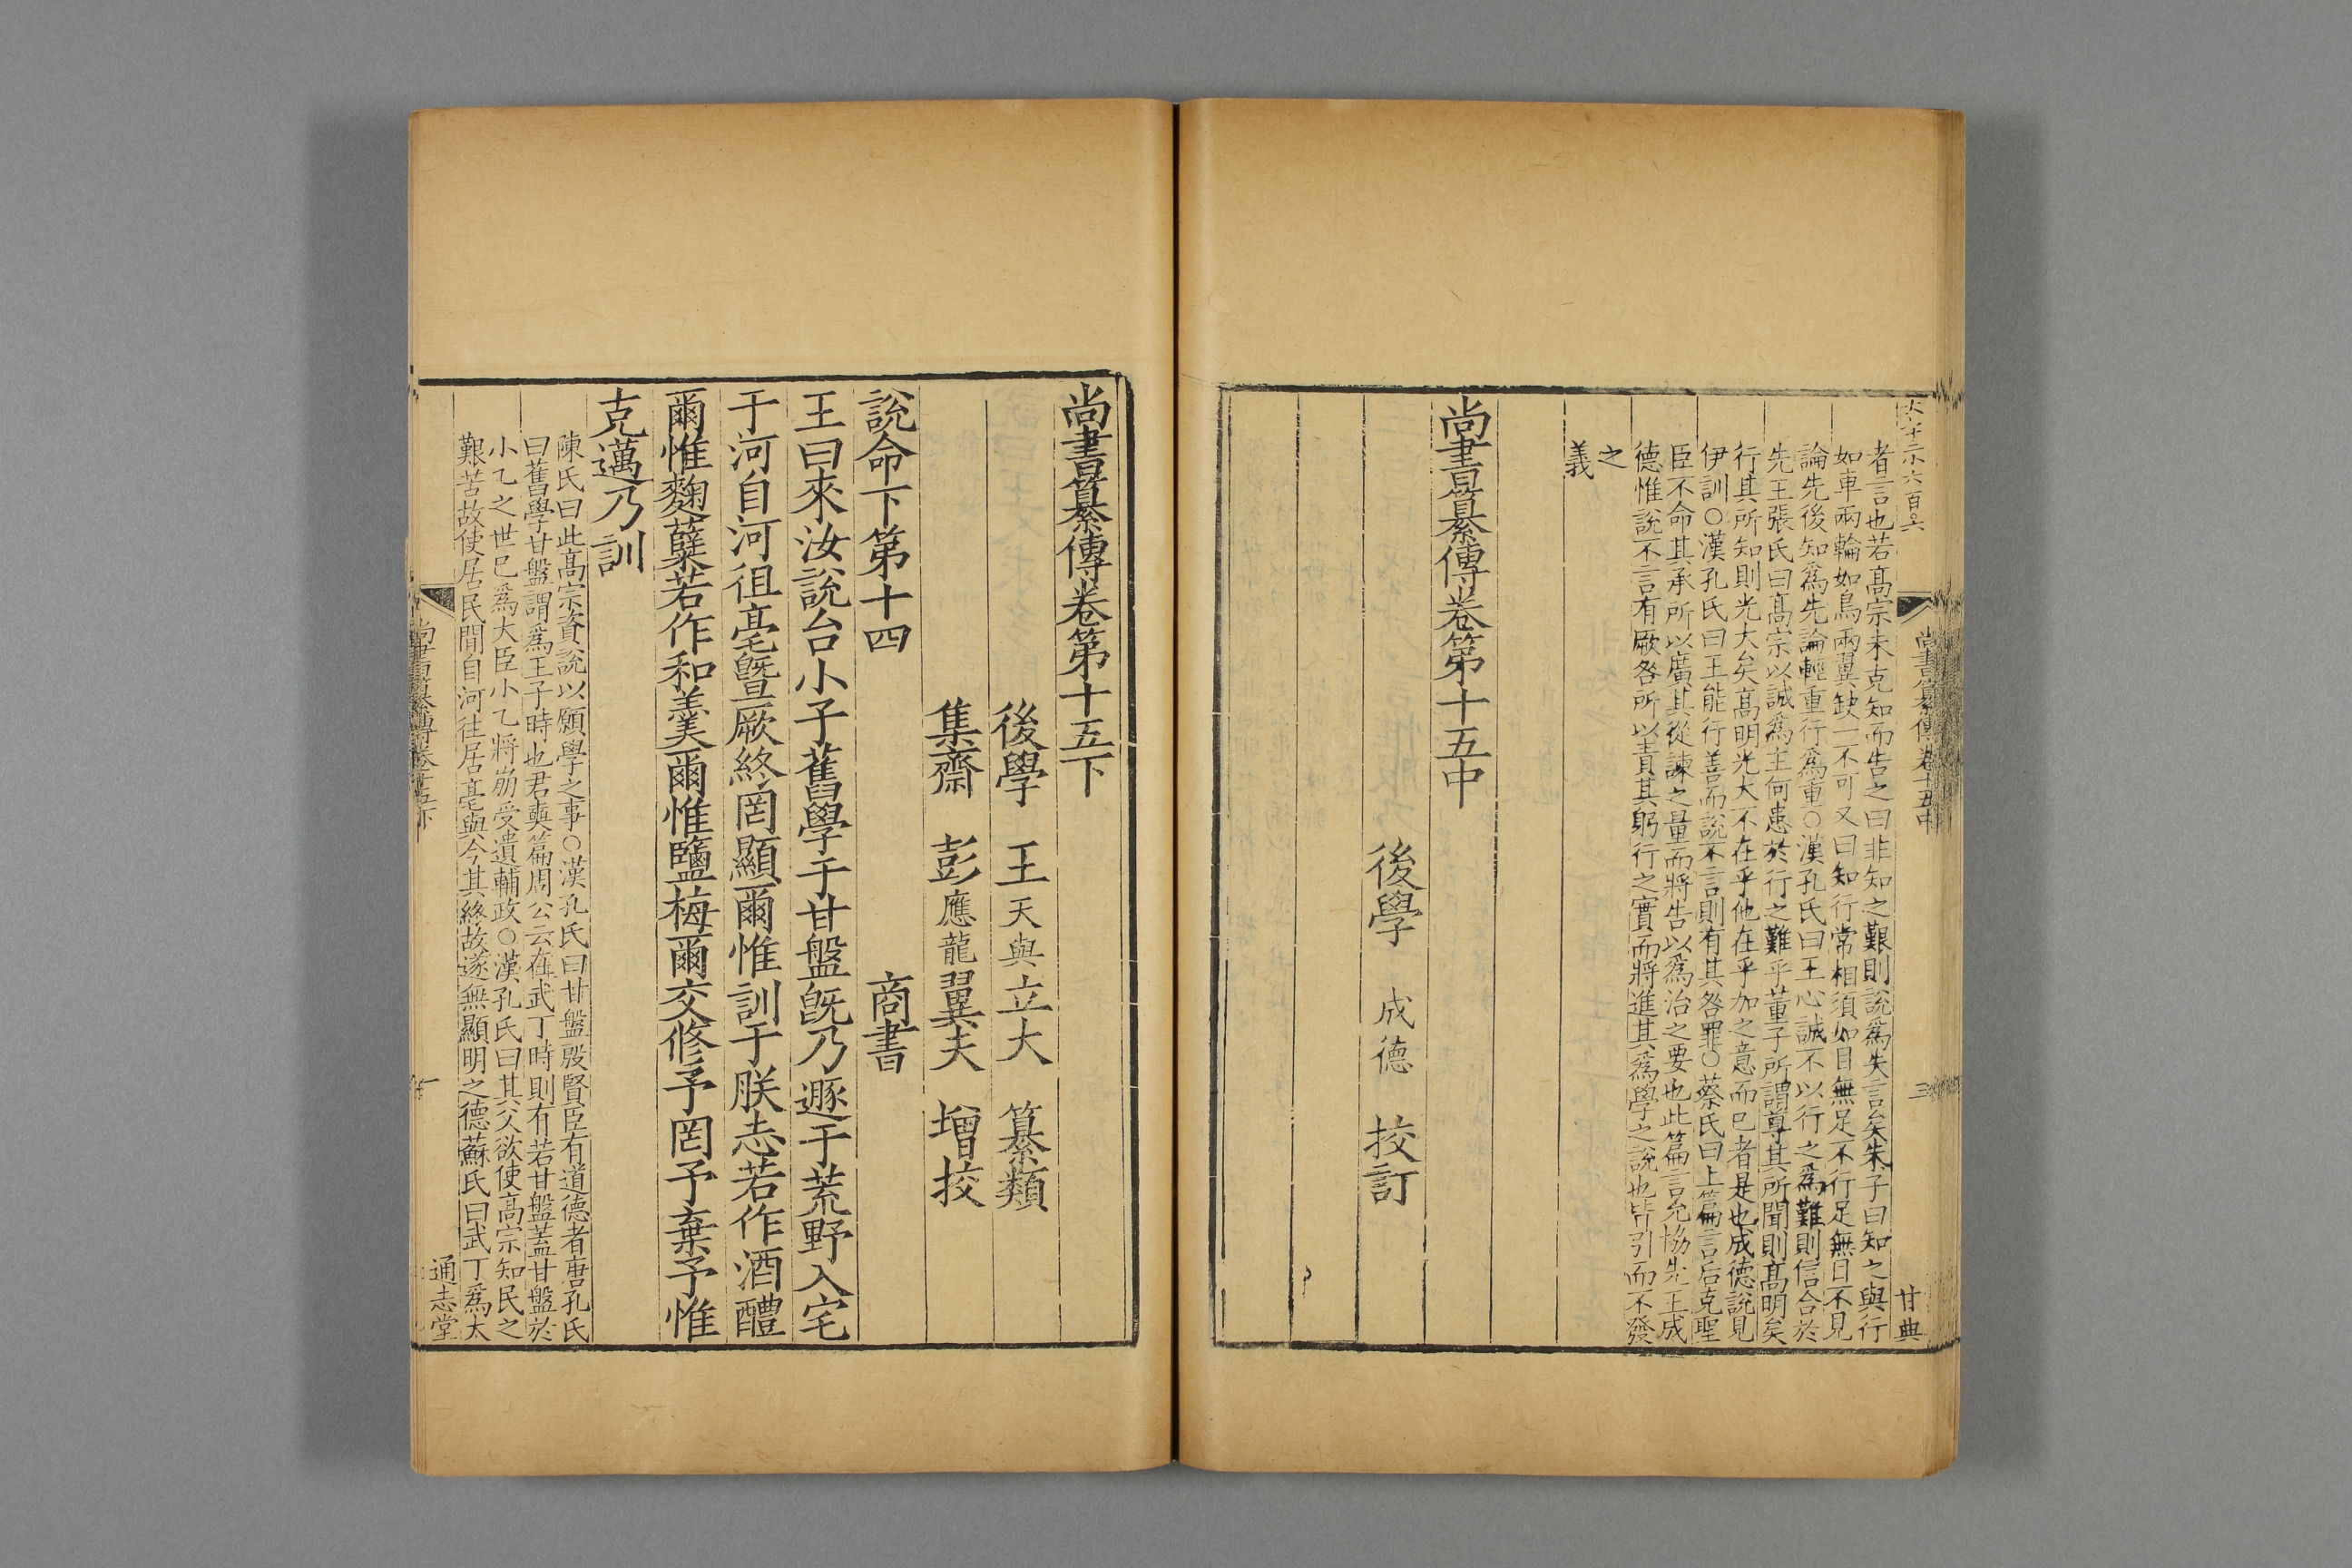 尚書纂傳卷十五中
三
甘典
者言也若髙宗未克知而告之曰非知之艱則說爲失言矣朱子曰知之與行
如車兩輪如鳥兩翼缺一不可又曰知行常相須如目無足不行足無目不見
論先後知爲先論輕重行爲重○漢孔氏曰王心誠不以行之爲難則信合於
先王張氏曰髙宗以誠爲主何患於行之難乎董子所謂尊其所聞則髙明矣
行其所知則光大矣髙明光大不在乎他在乎加之意而已者是也成德說見
伊訓○漢孔氏曰王能行善而說不言則有其咎罪○蔡氏曰上篇言后克聖
臣不命其承所以廣其從諫之量而將告以爲治之要也此篇言允協先王成
德惟說不言有厥咎所以責其躬行之實而將進其爲學之說也皆引而不發
之
義
尚書纂傳卷第十五中
後學 成德 挍訂
尚書纂傳卷第十五下
後學 王天與立大 纂類
集齋 彭應龍翼夫 增挍
說命下第十四 商書
王曰來汝說台小子舊學于甘盤旣乃遯于荒野入宅
于河自河徂亳曁厥終罔顯爾惟訓于朕志若作酒醴
爾惟麴糱若作和羹爾惟鹽梅爾交修予罔予棄予惟
克邁乃訓
陳氏曰此髙宗資說以願學之事○漢孔氏曰甘盤殷賢臣有道德者唐孔氏
曰舊學甘盤謂爲王子時也君奭篇周公云在武丁時則有若甘盤蓋甘盤於
小乙之世已爲大臣小乙將崩受遺輔政○漢孔氏曰其父欲使髙宗知民之
艱苦故使居民閒自河往居亳與今其終故遂無顯明之德蘇氏曰武丁爲太
尚書纂傳卷十五下
一
通志堂